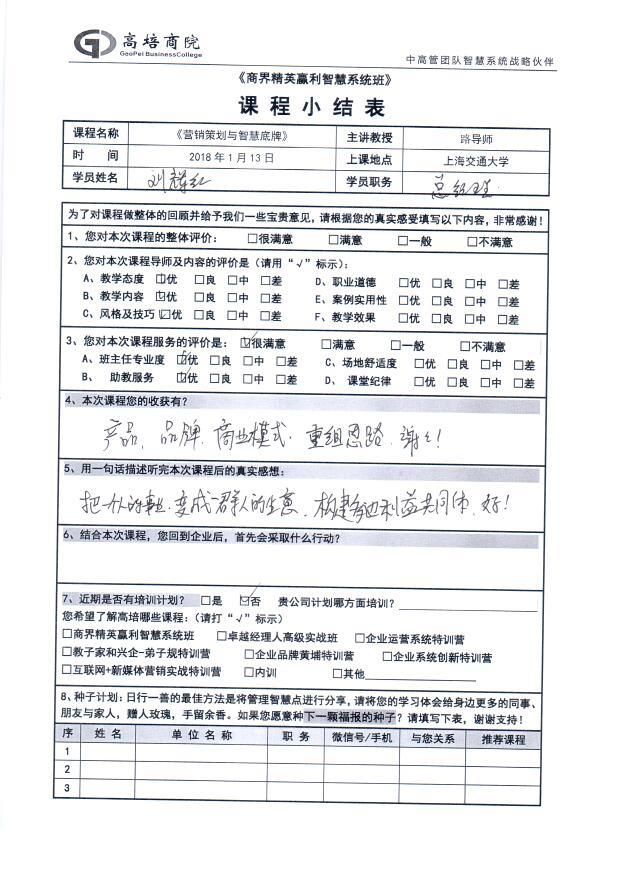 高培商院
GaoPei BusinessCollege
中高管团队智慧系统战略伙伴
《商界精英赢利智慧系统班》
课程小结表
课程名称 《营销策划与智慧底牌》 主讲教授 路导师
时 间 2018年1月13日 上课地点 上海交通大学
学员姓名 刘 红 学员职务 总经理
为了对课程做整体的回顾并给予我们一些宝贵意见,请根据您的真实感受填写以下内容,非常感谢!
1、您对本次课程的整体评价: □很满意 □满意 □一般 □不满意
2、您对本次课程导师及内容的评价是(请用“√”标示):
A、教学态度 ☑优 □良 □中 □差 D、职业道德 □优 □良 □中 □差
B、教学内容 ☑优 □良 □中 □差 E、案例实用性 □优 □良 □中 □差
C、风格及技巧 ☑优 □良 □中 □差 F、教学效果 □优 □良 □中 □差
3、您对本次课程服务的评价是: ☑很满意 □满意 □一般 □不满意
A、班主任专业度 ☑优 □良 □中 □差 C、场地舒适度 □优 □良 □中 □差
B、 助教服务 ☑优 □良 □中 □差 D、 课堂纪律 □优 □良 □中 □差
4、本次课程您的收获有?
产品、品牌、商业模式、重组思路、谢谢!
5、用一句话描述听完本次课程后的真实感想:
把一个人的事业、变成一群人的生意、构建 利益共同体、好!
6、结合本次课程,您回到企业后,首先会采取什么行动?
7、近期是否有培训计划? □是 ☑否 贵公司计划哪方面培训?
您希望了解高培哪些课程:(请打“√”标示)
□商界精英赢利智慧系统班 □卓越经理人高级实战班 □企业运营系统特训营
□教子家和兴企-弟子规特训营 □企业品牌黄埔特训营 □企业系统创新特训营
□互联网+新媒体营销实战特训营 □内训 □其他
8、种子计划:日行一善的最佳方法是将管理智慧点进行分享,请将您的学习体会给身边更多的同事、
朋友与家人,赠人玫瑰,手留余香。如果您愿意种下一颗福报的种子?请填写下表,谢谢支持!
序 姓 名 单 位 名 称 职 务 微信号/手机 与您关系 推荐课程
1
2
3